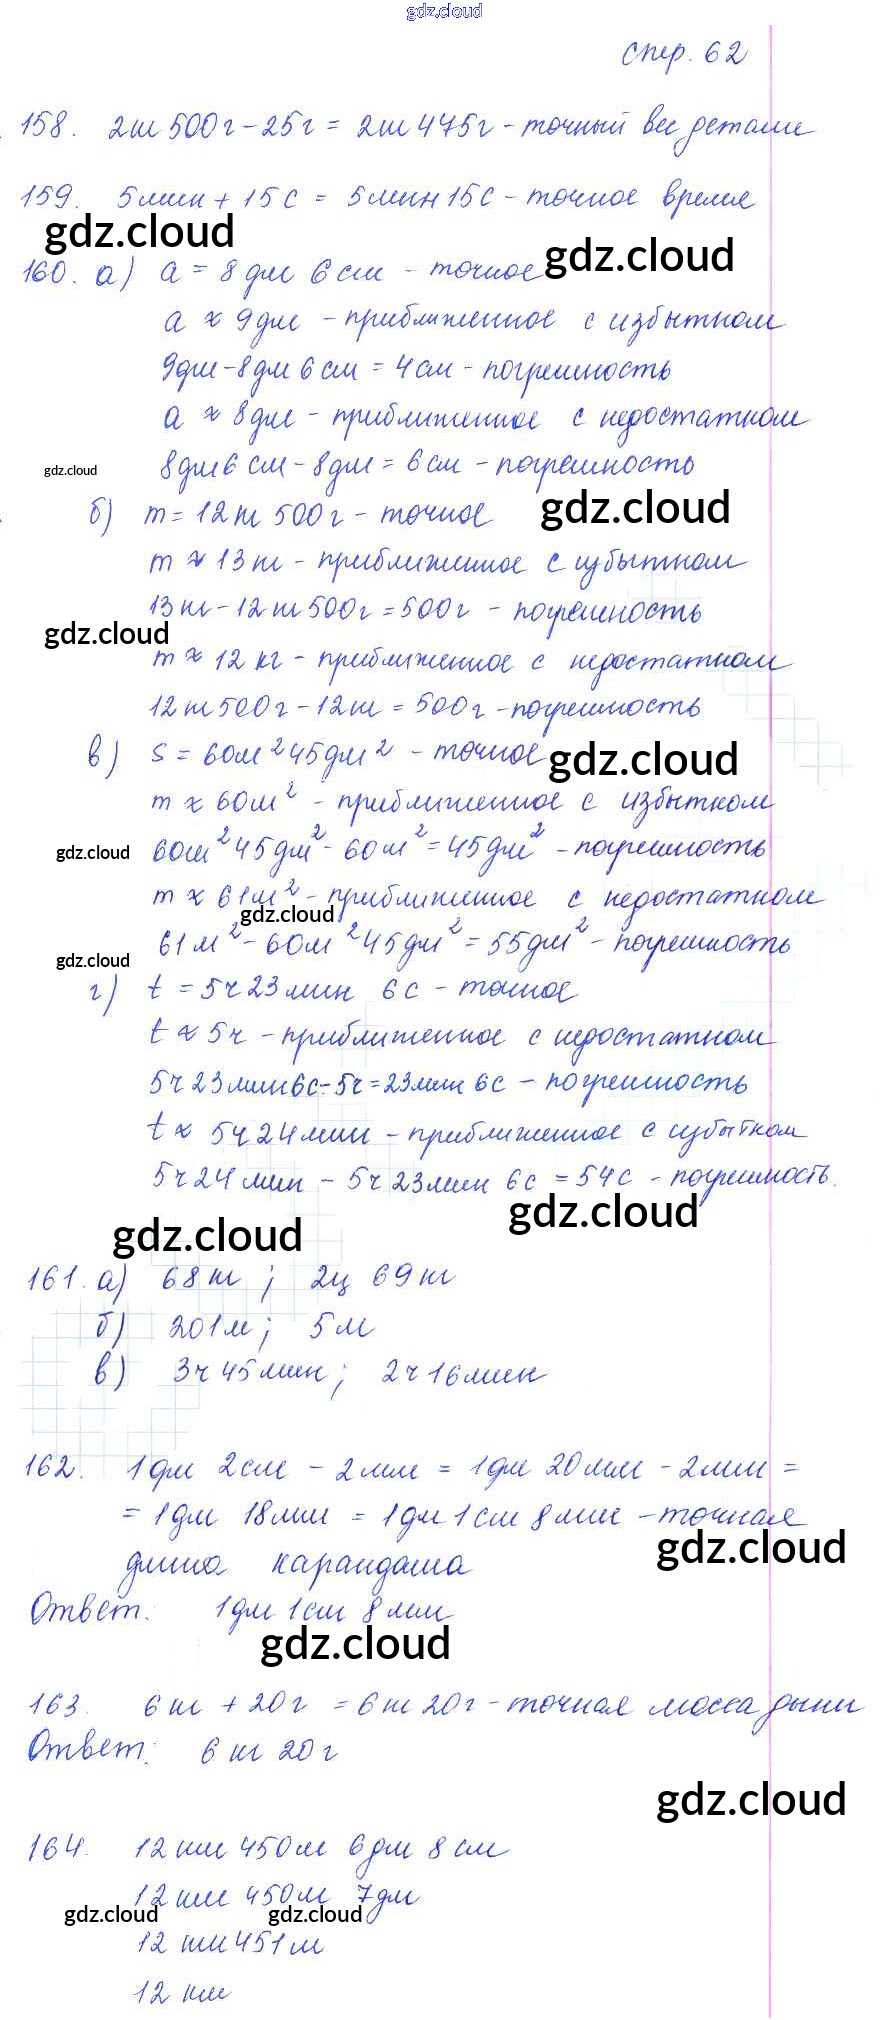 gdz.cloud
стр. 62
158. 2кг 500г - 25г = 2кг 475г - точный вес детали
159. 5мин + 15с = 5мин 15с - точное время
gdz.cloud
gdz.cloud
160. а) a = 8дм 6см - точное
a ≈ 9дм - приближенное с избытком
9дм - 8дм 6см = 4см - погрешность
a ≈ 8дм - приближенное с недостатком
gdz.cloud
8дм 6см - 8дм = 6см - погрешность
б) m = 12кг 500г - точное
gdz.cloud
m ≈ 13кг - приближенное с избытком
13кг - 12кг 500г = 500г - погрешность
gdz.cloud
m ≈ 12кг - приближенное с недостатком
12кг 500г - 12кг = 500г - погрешность
в) S = 60м² 45дм² - точное
gdz.cloud
m ≈ 60м² - приближенное с избытком
gdz.cloud
60м² 45дм² - 60м² = 45дм² - погрешность
m ≈ 61м² - приближенное с недостатком
gdz.cloud
61м² - 60м² 45дм² = 55дм² - погрешность
gdz.cloud
г) t = 5ч 23мин 6с - точное
t ≈ 5ч - приближенное с недостатком
5ч 23мин 6с - 5ч = 23мин 6с - погрешность
t ≈ 5ч 24мин - приближенное с избытком
5ч 24мин - 5ч 23мин 6с = 54с - погрешность.
gdz.cloud
gdz.cloud
161. а) 68кг ; 2ц 69кг
б) 201м ; 5м
в) 3ч 45мин ; 2ч 16мин
162. 1дм 2см - 2мм = 1дм 20мм - 2мм =
= 1дм 18мм = 1дм 1см 8мм - точная
gdz.cloud
длина карандаша
Ответ: 1дм 1см 8мм
gdz.cloud
163. 6кг + 20г = 6кг 20г - точная масса дыни
Ответ: 6кг 20г
gdz.cloud
164. 12км 450м 6дм 8см
12км 450м 7дм
gdz.cloud
gdz.cloud
12км 451м
12км